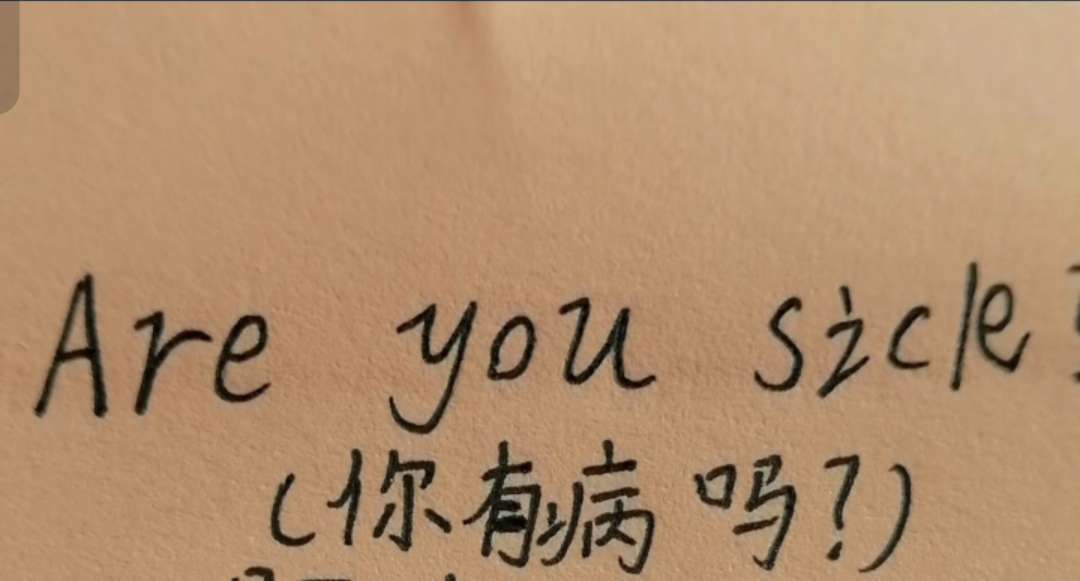 Are you sick
(你有病吗?)